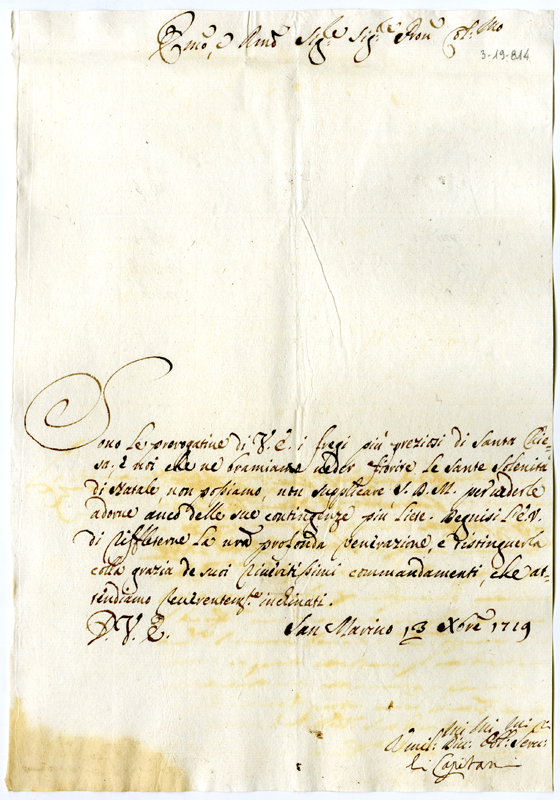 Emo, e Rmo Sig.re Sig.re Pron Col.mo
3-19-814
Sono le prerogative di V. E. i fregi più preziosi di Santa Chie=
sa, e noi che ne bramiamo veder fiorire le Sante Solenità
di Natale, non possiamo, non supplicare S. D. M. per vederle
adorne anco delle sue contingenze più liete. Degnisi l'E. V.
di riffletterne la nrã profonda venerazione, e distinguerla
colla grazia de suoi riveritissimi commandamenti, che at=
tendiamo reverentem.te inclinati.
D. V. E. San Marino 13 Xbre 1719
Vmil: Div: Obl: Serv:
Li Capitani